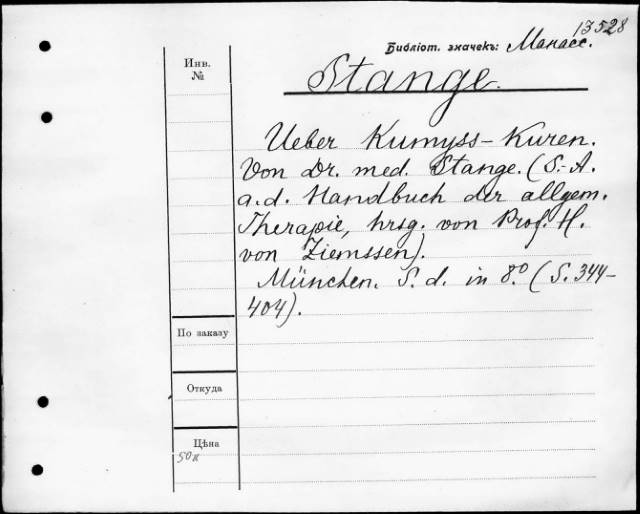 13528
Библіот. значекъ: Манасс.
Инв.
№
Stange.
Ueber Kumyss-Kuren.
Von Dr. med. Stange. (S.-A.
a. d. Handbuch der allgem.
Therapie, hrsg. von Prof. H.
von Ziemssen).
München. S. d. in 8.º (S. 344-
404).
По заказу
Откуда
Цѣна
50 к